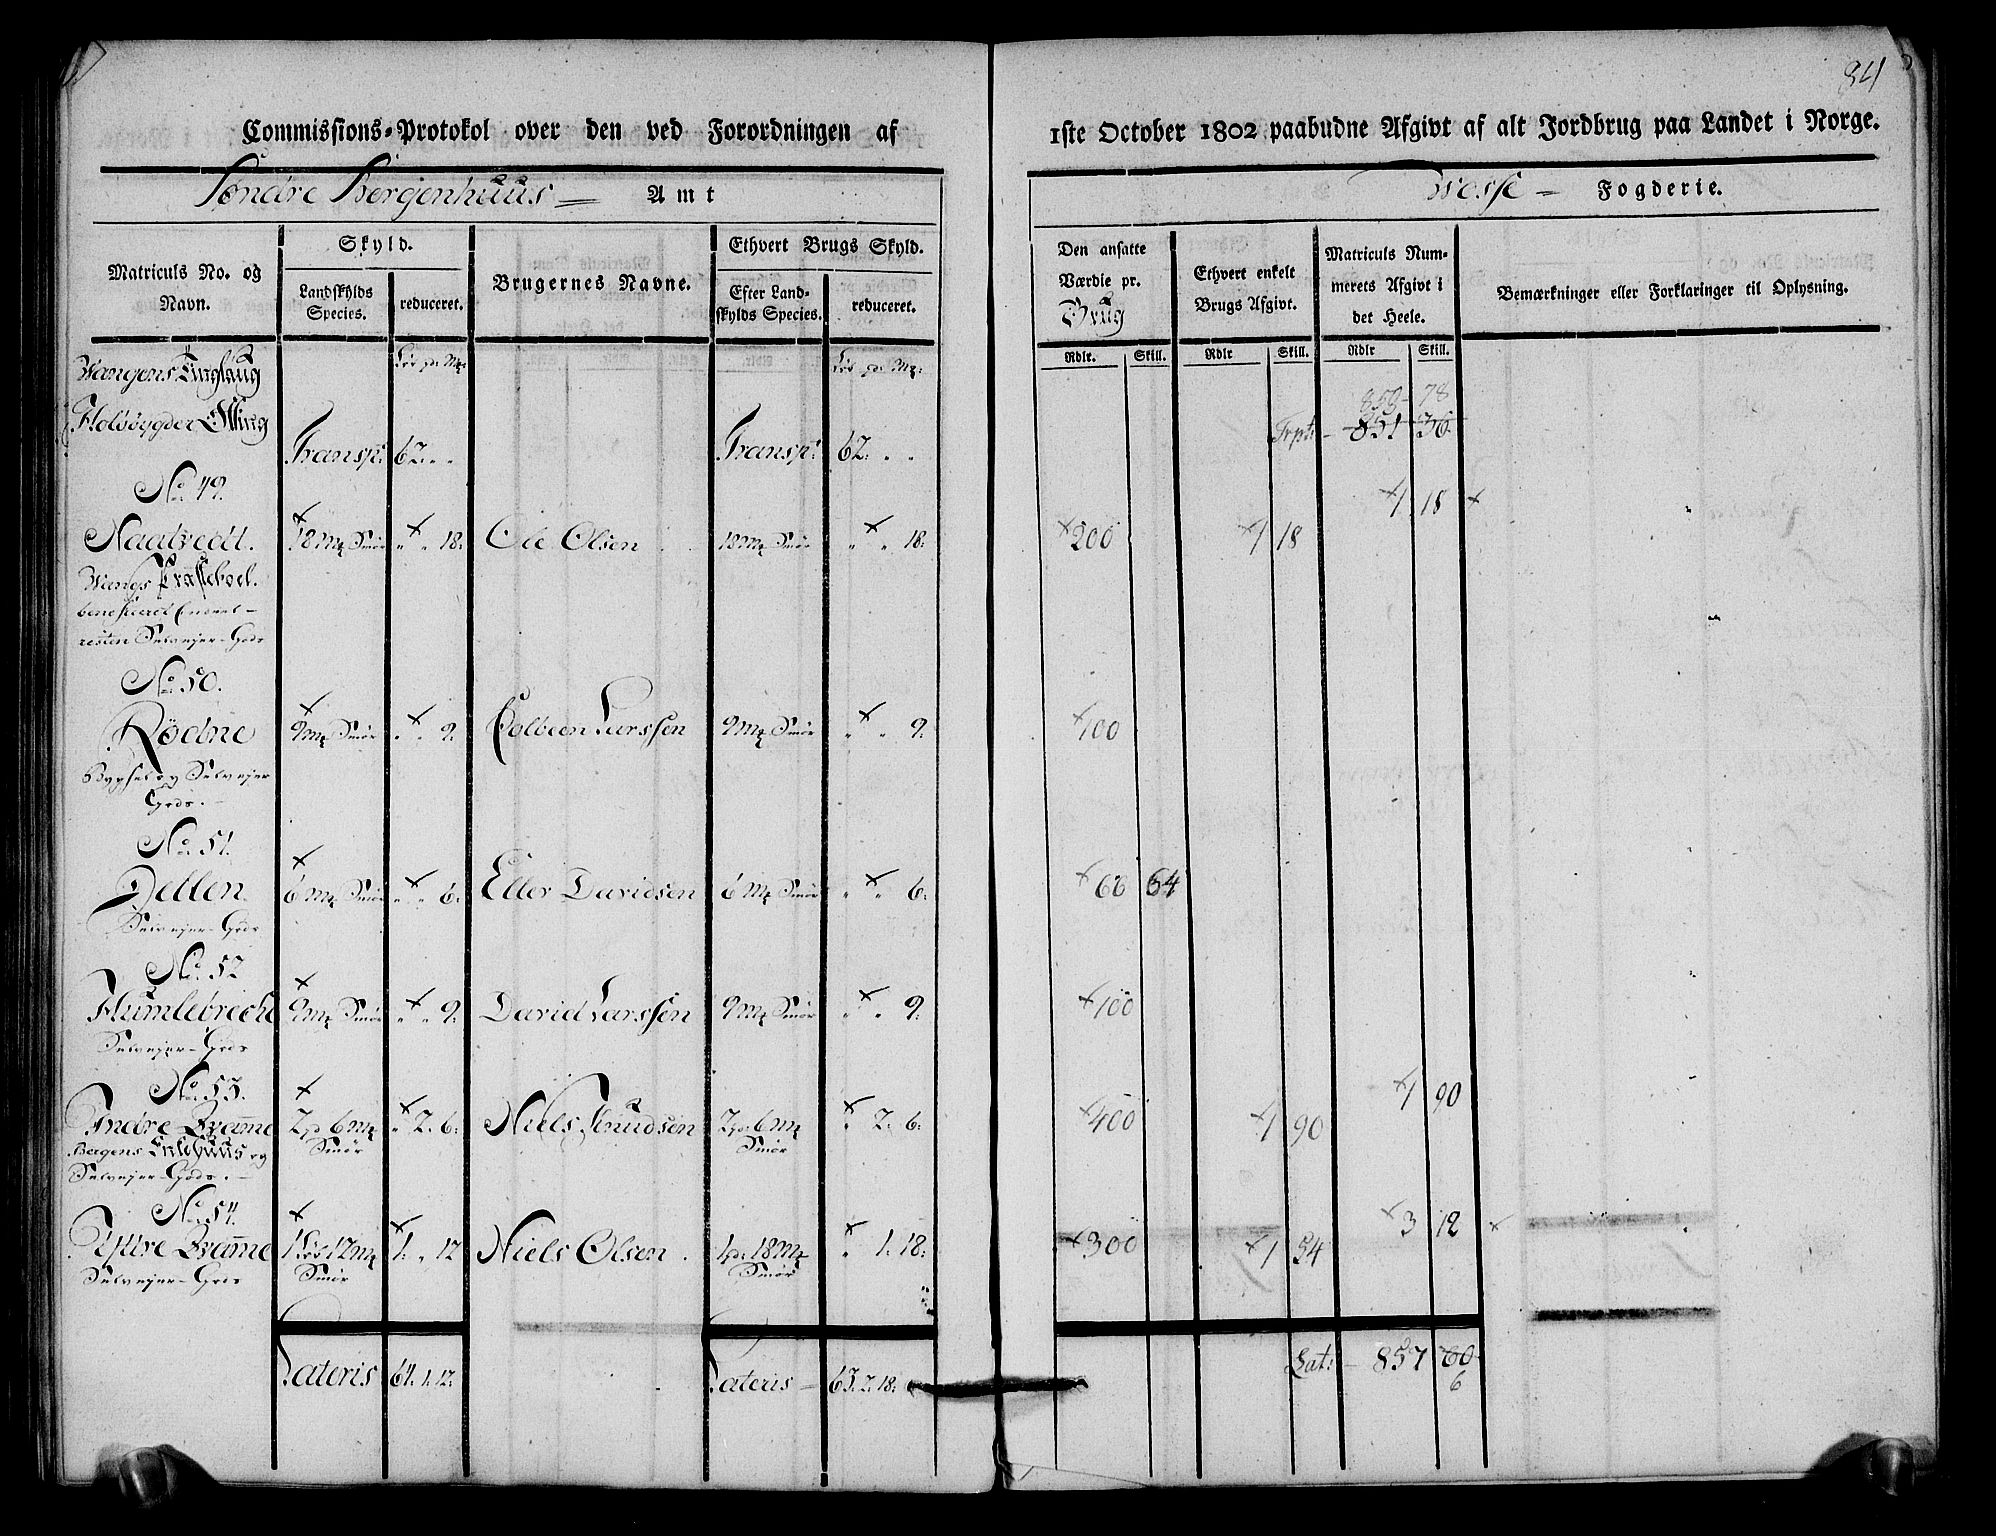 84
Commissions-Protokol over den ved Forordningen af 1ste October 1802 paabudne Afgivt af alt Jordbrug paa Landet i Norge.
Søndre Bergenhuus Amt Wosse Fogderie.
Matriculs No. og Navn.
Skyld.
Landskylds Species.
reduceret.
Brugernes Navne.
Ethvert Brugs Skyld.
Efter Landskylds Species.
reduceret.
Den ansatte Værdie pr. Brug
Ethvert enkelt Brugs Afgivt.
Matriculs Nummerets Afgivt i det Heele.
Bemærkninger eller Forklaringer til Oplysning.
Rdlr. Skill. Rdlr Skill. Rdlr Skill.
Wangens Tinglaug
859 78
Transp: 62. " " Transp: 62. " " Trpt: 851 36
No. 49.
1 18
18 Mk Smør " " 18: Ole Olsen 18 Mk Smør " " 18: 200 1 18
Wangs
resten Selvejer-Gods
No. 50.
Rödne 9 Mk Smør " " 9: Kolbeen Larssen 9 Mk Smør " " 9: 100
Bygsel og Selvejer
Gods.
No. 51.
6 Mk Smør " " 6: Eller Davidsen 6 Mk Smør " " 6: 66 64
Selvejer-Gods
No. 52
Humlebreche 9 Mk Smør " " 9: David Larssen 9 Mk Smør " " 9: 100
Selvejer-Gods
No. 53.
1 90
Indre 2 p 6 Mk " 2. 6: Niels Knudsen 2 p: 6 Mk " 2. 6: 400 1 90
Bergens Enkehuus og Smør Smør
Selvejer-Gods.
No. 54.
3 12
Yttre 1 Løb 12 Mk 1. " 12 Niels Olsen. 1 p: 18 Mk " 1. 18: 300 1 54
Selvejer-Gods Smør Smør
Lateris 64. 1. 12: Lateris 63. 2. 18: Lat: 857
6